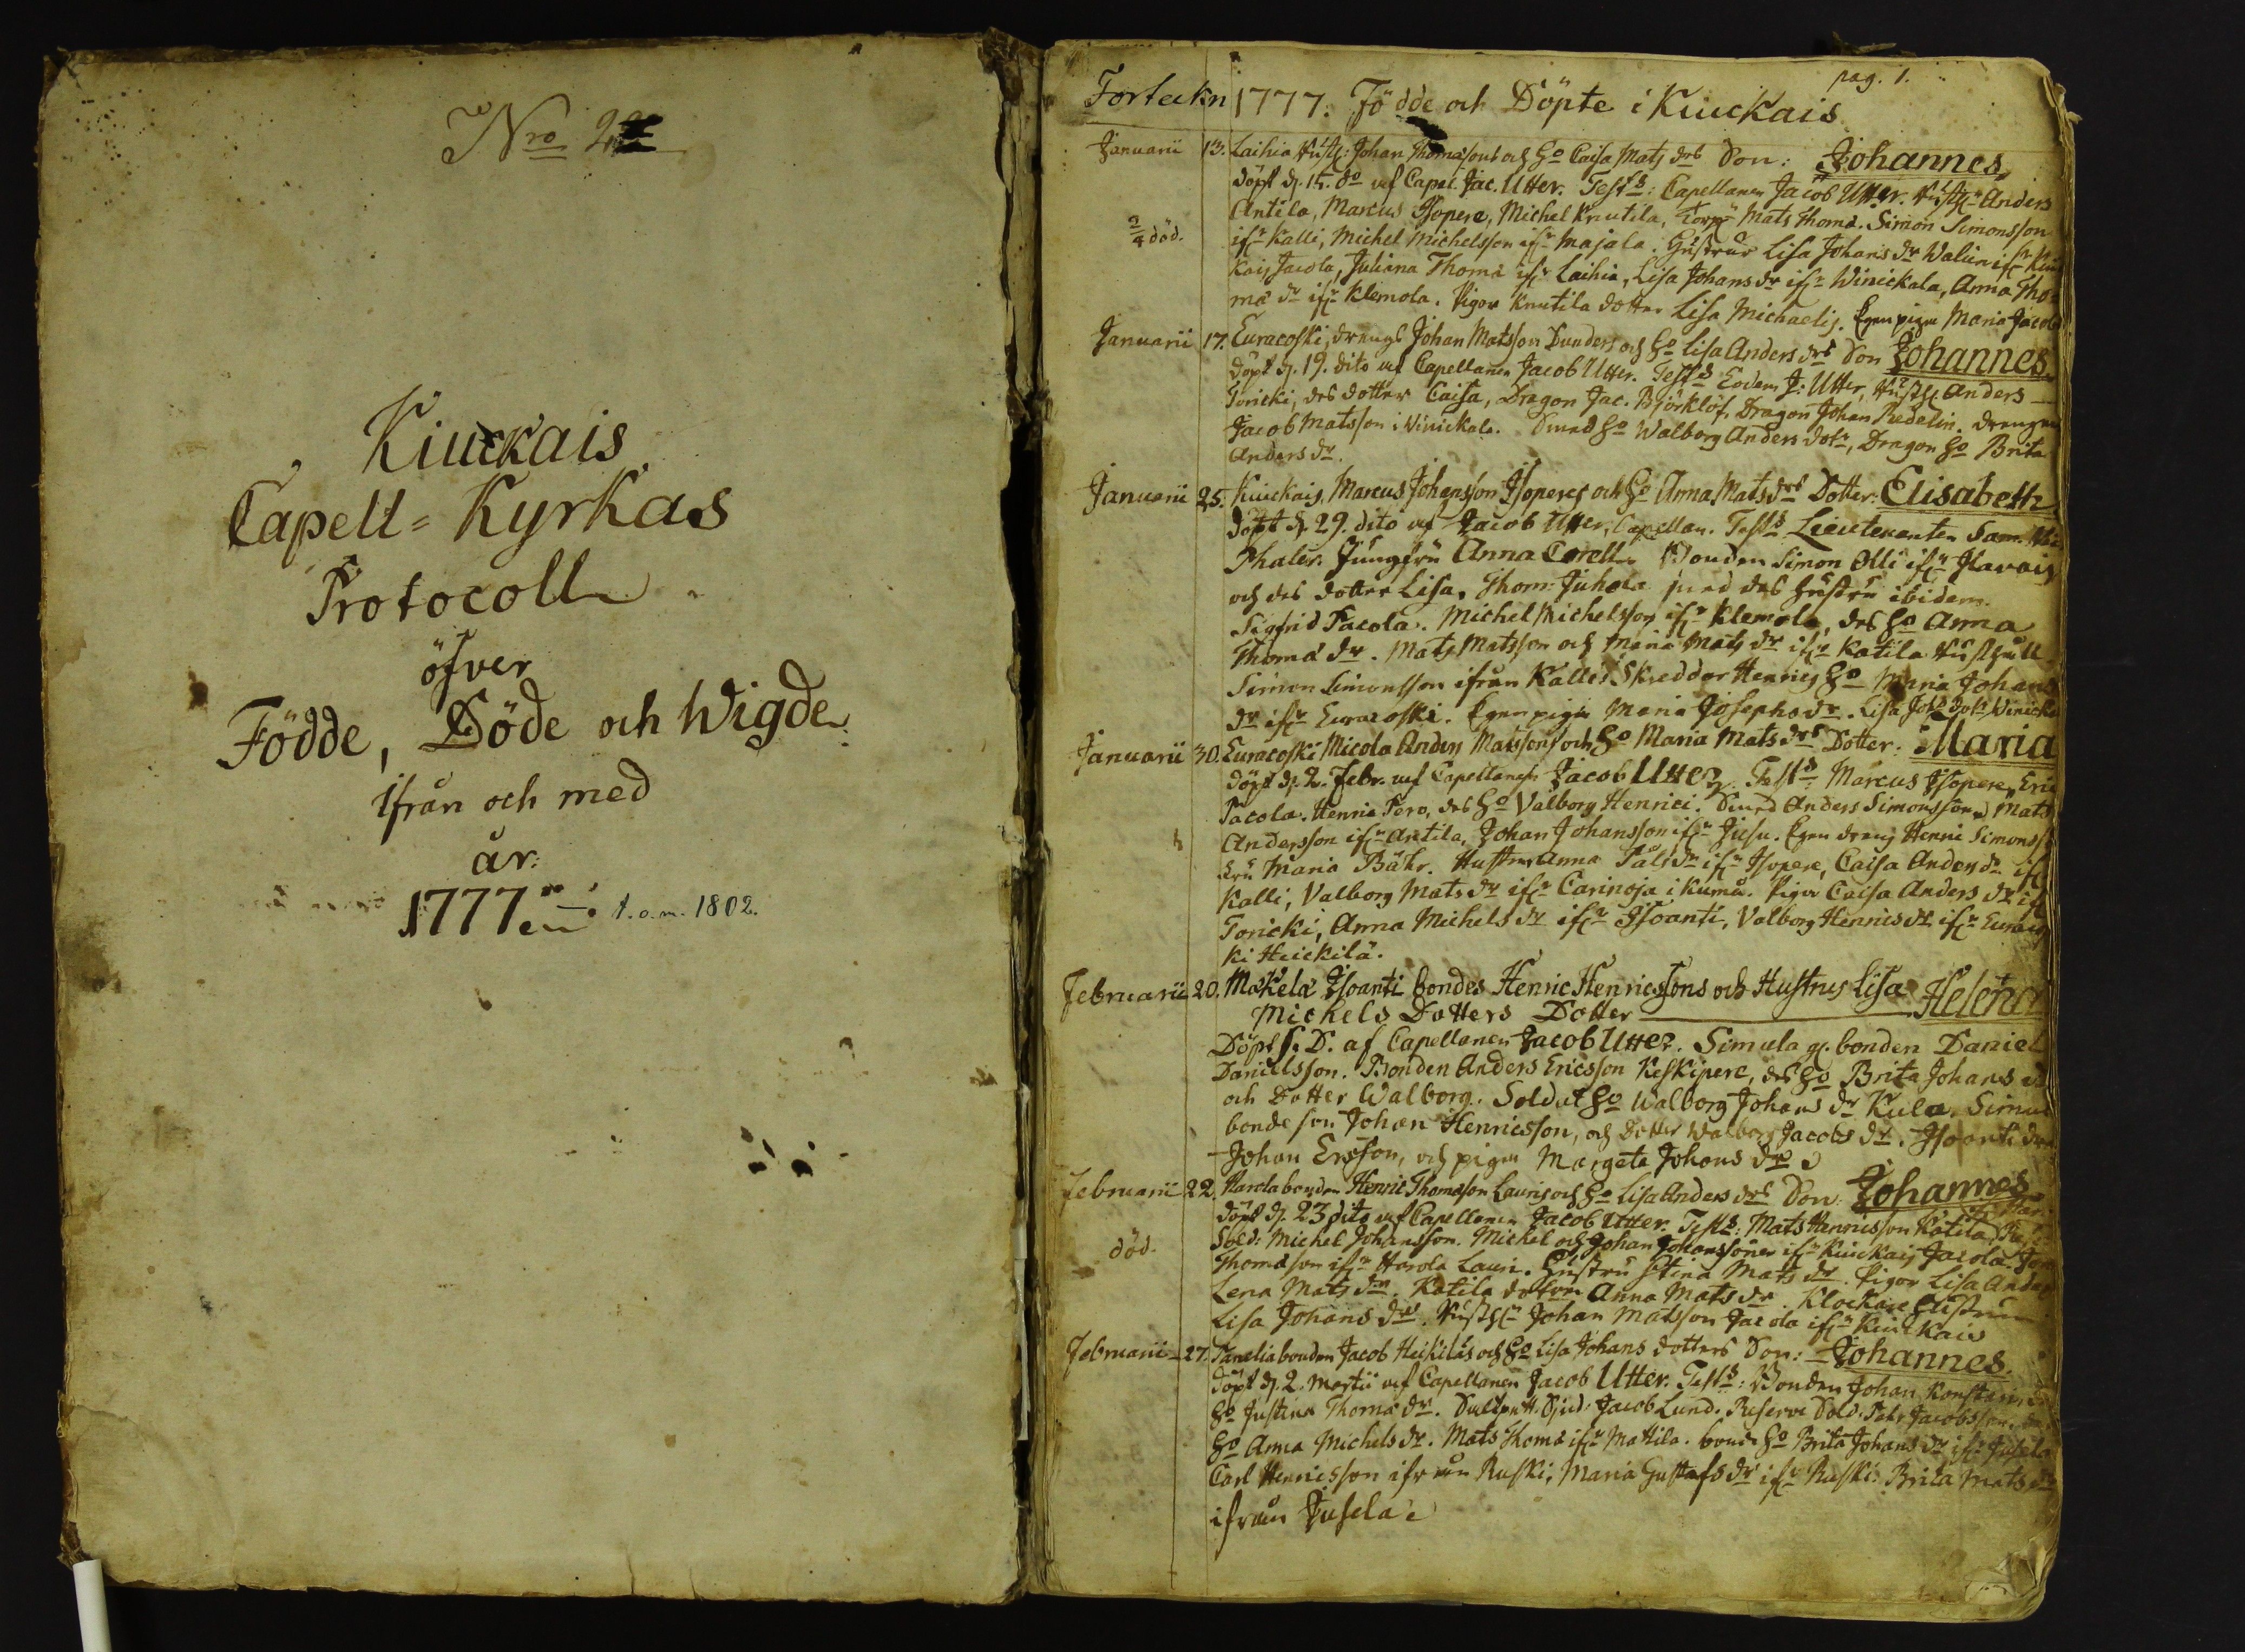 Nro 2
Kiuckais
Capell=Kyrkas
Protocoll
öfver
Födde, Döde och Wigde
Ifrån och med
år:
1777. t.o.m. 1802.
pag. 1.
Forteckn 1777. Födde och Döpte i Kiuckais
Januarii 13. Laihia Johan Thomæsons och Ho Caisa Mats drs Son: Johannes,
döpt d. 15. do af Capel. Jac. Utter. Test: Capellanen Jacob Utter. Anders
Antila, Marcus Isopere, Michel Knutila, Torp Mats Thomæ. Simon Simonsson
2/4 död.
ifr Kalli, Michel Michelsson ifr Majala. Hustrur Lisa Johans dr Walin ifr
Kais Jacola, Juliana Thomæ ifr Laihia, Lisa Johans dr ifr Winickala, Anna Tho-
mæ dr ifr Klemola. Pigor Knutila dotter Lisa Michaelis. Egen pigan Maria Jacobs
Januarii 17. Euracoski, drengs Johan Matsson Dunders och Ho Lisa Anders drs Son Johannes
döpt d. 19. dito af Capellanen Jacob Utter. Test Eodem J: Utter, Anders
Toricki, des dotter Caisa, Dragon Jac. Björklöf, Dragon Johan Redelin. drengen
Jacob Matsson i Winickala. Smed Ho Walborg Anders dotr, Dragon Ho Brita
Anders dr.
Januarii 25. Kiuckais, Marcus Johansson Isoperes och Ho Anna Mats drs Dotter: Elisabeth
döpt d. 29. dito af Jacob Utter, Capellan. Test Lieutenanten Sam.
Phaler. Jungfru Anna Corell. Bonden Simon Olli ifr Ilavais
och des dotter Lisa. Thom: Juhola med des hustru ibidem.
Sigfrid Pacola. Michel Michelsson ifr Klemola, des Ho Anna
Thomæ dr. Mats Matsson och Maria Mats dr ifr Katila
Simon Simonsson ifrån Kalli. Skreddar Henrics Ho Maria Johans
dr ifr Euracoski. Egen pigan Maria Josephs dr. Lisa Joh dotr Winicka
Januarii 30. Euracoski Micola Anders Matssons och Ho Maria Mats drs Dotter: Maria
döpt d. 2. Febr. af Capellanen Jacob Utter. Test Marcus Isopere, Eric
Pacola. Henric Pero, des Ho Valborg Henrici. Smed Anders Simonsson Mats
Andersson ifr Antila, Johan Johansson ifr Jusu. Egen dreng Henric Simonss
Fru Maria Bähr. Hustrur Anna Påls dr ifr Isopere, Caisa Anders dr ifr
Kalli, Valborg Mats dr ifr Carinoja i Kumå. Pigor Caisa Anders dr ifr
Toricki, Anna Michels dr ifr Isoanti, Valborg Henrics dr ifr Euracos
ki Heickilä.
Februarii 20. Mäkelä Isoanti bondes Henric Henricssons och Hustrus Lisa
Mickels Dotters Dotter Helena
Döpt S. D. af Capellanen Jacob Utter. Simula g. bonden Daniel
Danielsson. Bonden Anders Ericsson Keskipere, des Ho Brita Johans dr
och Dotter Walborg. Soldat Ho Walborg Johans dr Kula. Simula
bonde son Johan Henricsson, och Dotter Walborg Jacobs dr. Isoanti dr
Johan Ersson, och pigan Margeta Johans dr
Februarii 22. Harola bonden Henric Thomasson Lauris och Ho Lisa Anders drs Son: Johannes
döpt d. 23 dito af Capellanen Jacob Utter. Test: Mats Henricsson Katila,
Sold: Michel Johansson. Michel och Johan Johanssöner ifr Kiuckais Jacola.
död.
Thomæson ifr Harola Lauri. Hustru Stina Mats dr. Pigor Lisa Anders
Lena Mats dr. Katila dotter Anna Mats dr. Klockare Hustrun
Lisa Johans dr. Johan Matsson Jacola ifr Kiuckais
Februarii 27. Panelia bonden Jacob Heikiläs och Ho Lisa Johans dotters Son: Johannes.
döpt d. 2. Martii af Capellanen Jacob Utter. Test: Bonden Johan Konstari,
Ho Justina Thomæ dr. Jacob Lund. Reserve Sold: Petr Jacobsson,
Ho Anna Michels dr. Mats Thomæ ifr Mattila. bond Ho Brita Johans dr ifr Jusela
Carl Henricsson ifrån Ruski, Maria Gustafs dr ifr Ruski. Brita Mats dr
ifrån Jusela